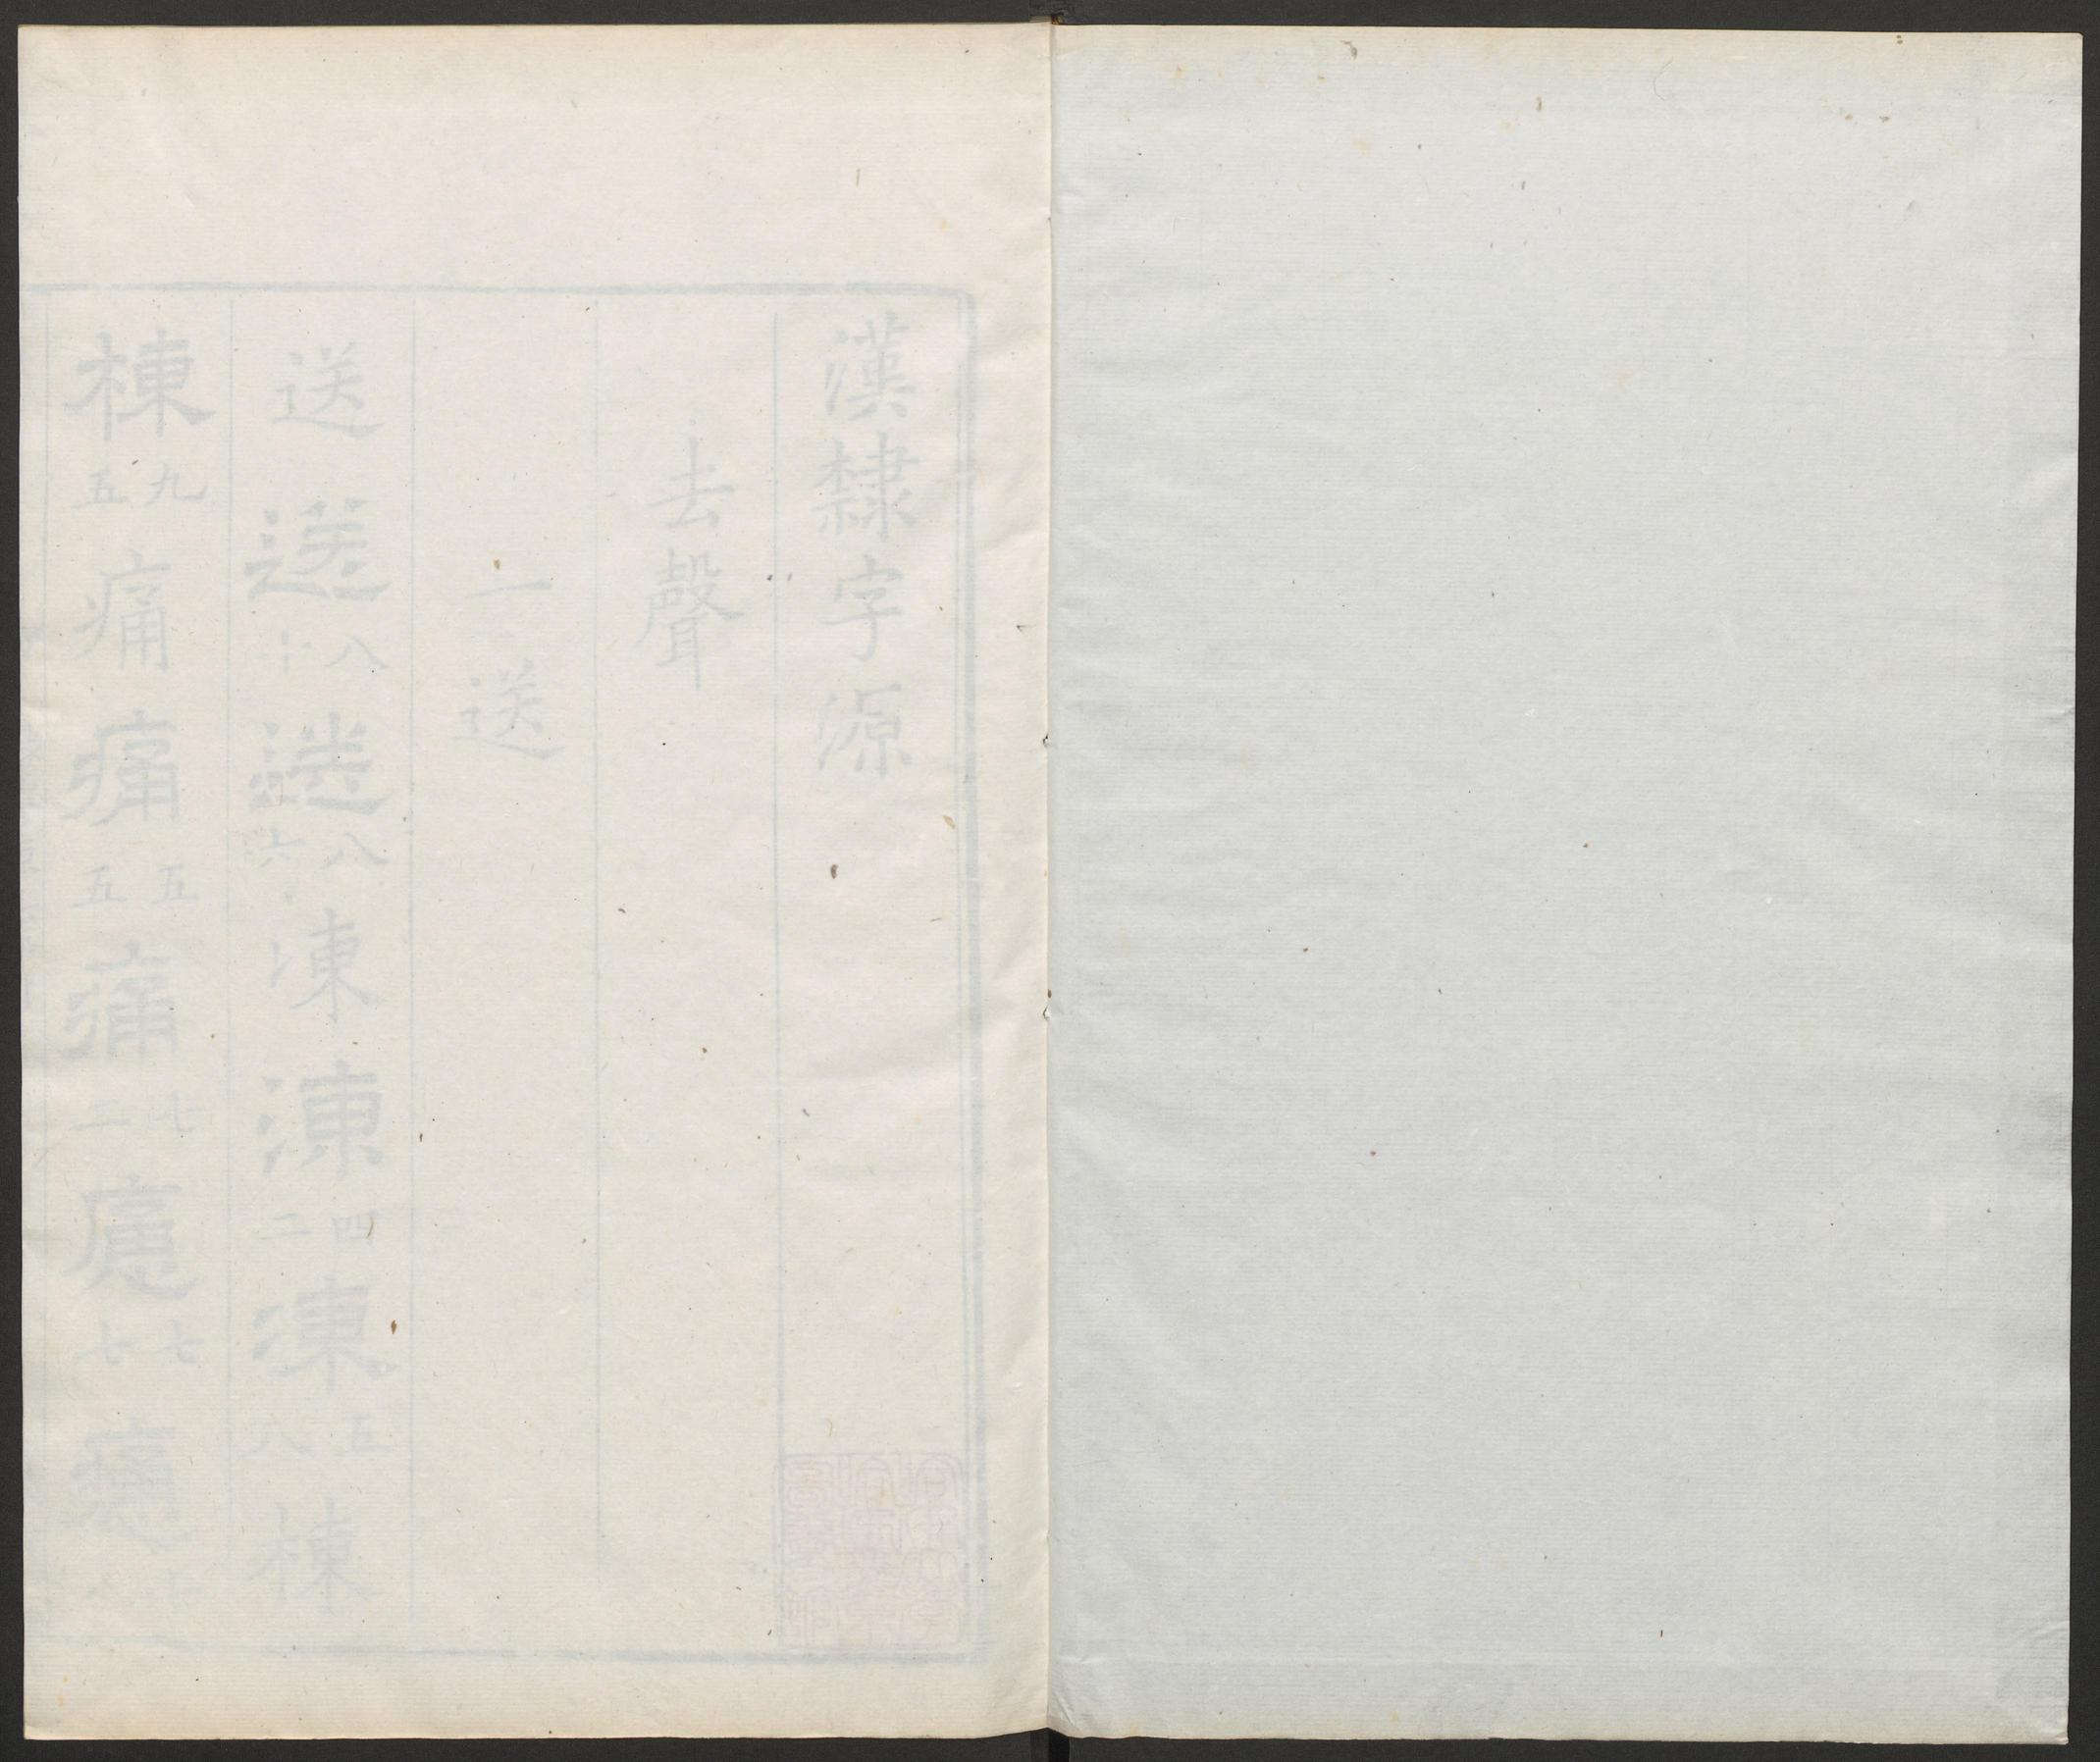 漢隸字源
去聲
一送
送送八十送八六凍凍四二凍五八棟
棟九五痛痛五五痛七二㾯七七